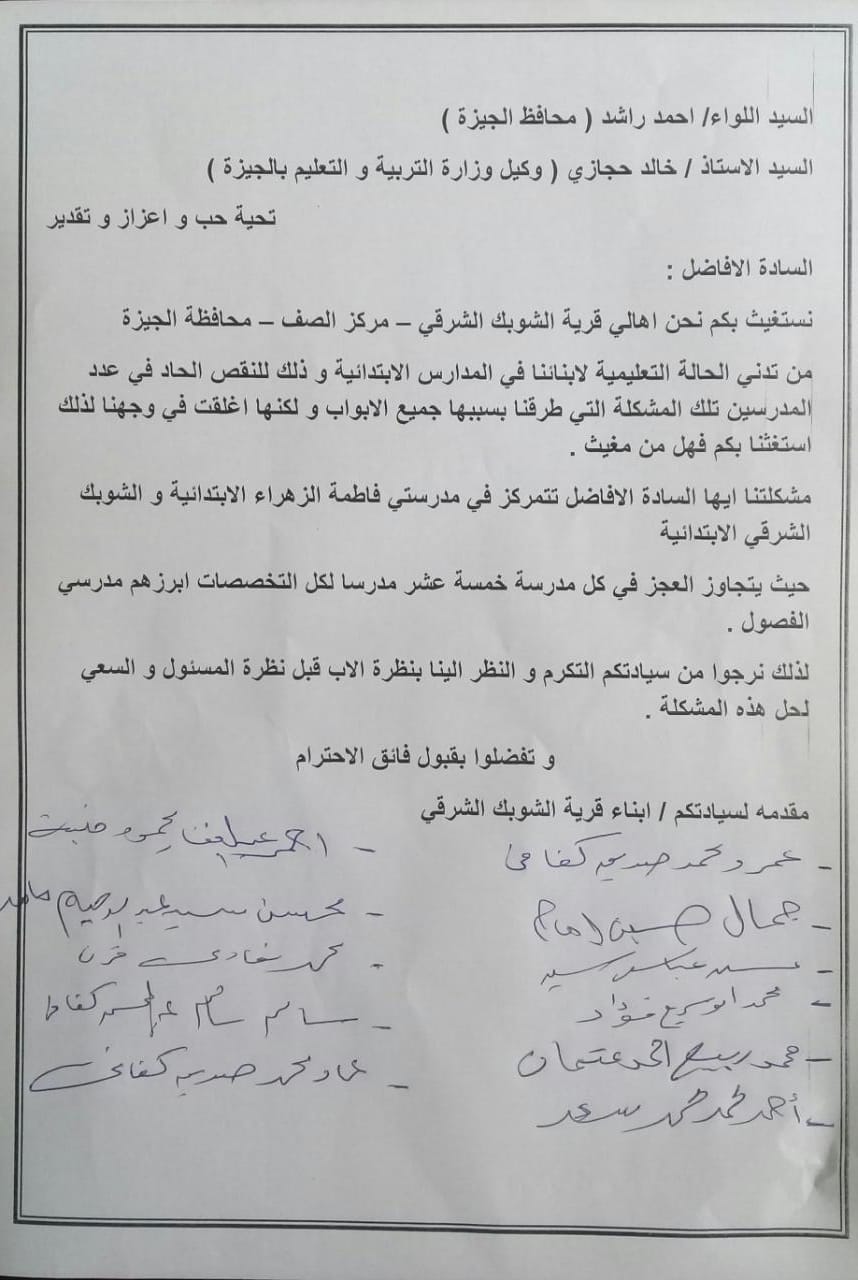 السيد اللواء/ احمد راشد ( محافظ الجيزة )
السيد الاستاذ / خالد حجازي ( وكيل وزارة التربية و التعليم بالجيزة )
تحية حب و اعزاز و تقدير
السادة الافاضل :
نستغيث بكم نحن اهالي قرية الشوبك الشرقي – مركز الصف – محافظة الجيزة
من تدني الحالة التعليمية لابنائنا في المدارس الابتدائية و ذلك للنقص الحاد في عدد
المدرسين تلك المشكلة التي طرقنا بسببها جميع الابواب و لكنها اغلقت في وجهنا لذلك
استغثنا بكم فهل من مغيث .
مشكلتنا ايها السادة الافاضل تتمركز في مدرستي فاطمة الزهراء الابتدائية و الشوبك
الشرقي الابتدائية
حيث يتجاوز العجز في كل مدرسة خمسة عشر مدرسا لكل التخصصات ابرزهم مدرسي
الفصول .
لذلك نرجوا من سيادتكم التكرم و النظر الينا بنظرة الاب قبل نظرة المسئول و السعي
لحل هذه المشكلة .
و تفضلوا بقبول فائق الاحترام
مقدمه لسيادتكم / ابناء قرية الشوبك الشرقي
- عمرو محمد صديق
- جمال حسين امام
- عباس سيد
- محمد ابو سريع فؤاد
- محمد ربيع احمد عثمان
- أحمد محمد محمد سعد
- احمد محمود
- محسن سيد عبد الرحيم
- محمد
- سالم سالم
- عماد محمد صديق